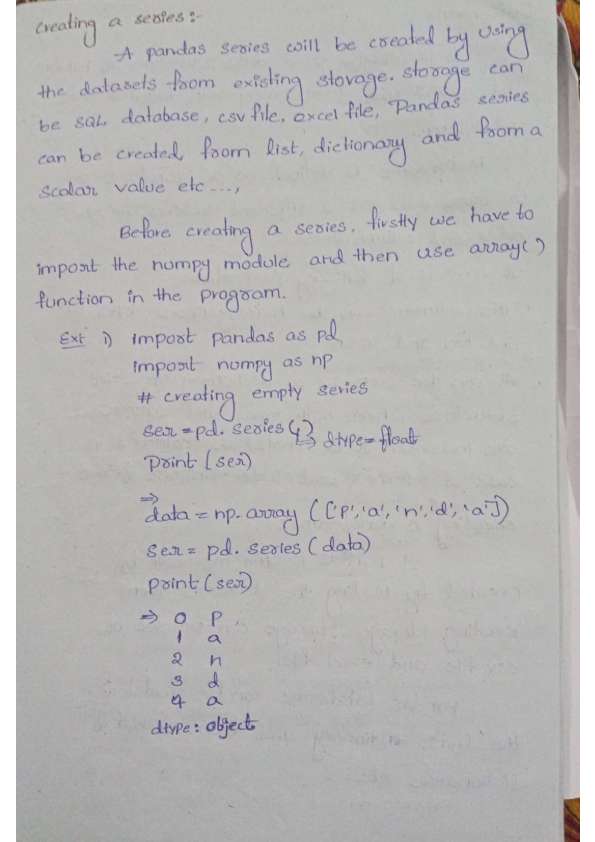 creating a series:-
A pandas series will be created by using
the datasets from existing storage. storage can
be SQL database, csv file, excel file, Pandas series
can be created from list, dictionary and from a
scalar value etc...,
Before creating a series, firstly we have to
import the numpy module and then use array()
function in the program.
Ex: 1) import pandas as pd
import numpy as np
# creating empty series
ser = pd. series() dtype=float
print (ser)
⇒
data = np. array (['P','a','n','d','a'])
ser = pd. series (data)
print (ser)
⇒ 0 P
1 a
2 n
3 d
4 a
dtype: object